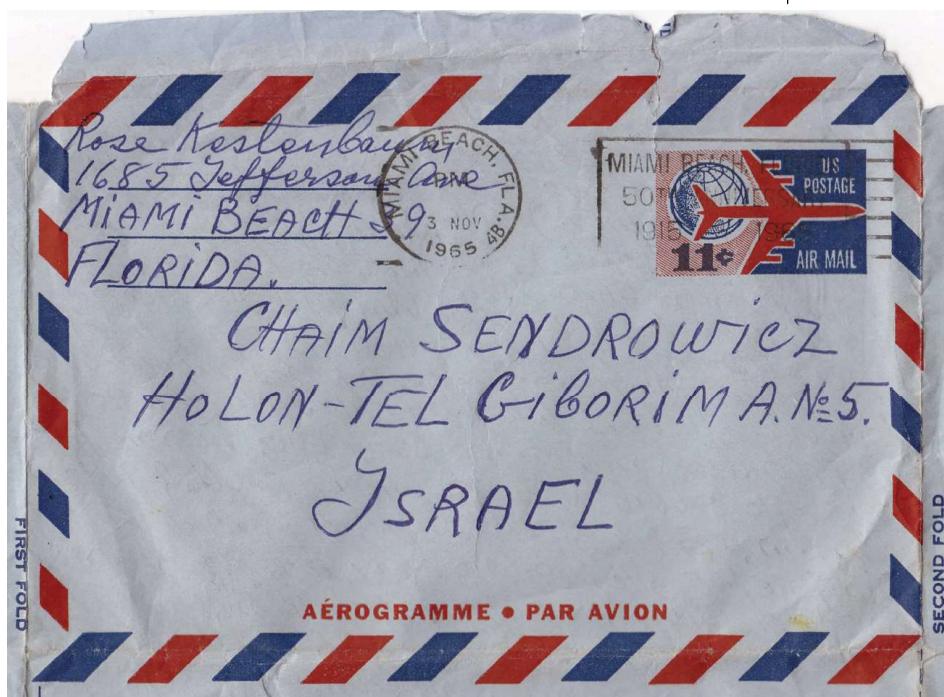 Rose Kestenbaum
1685 Jefferson Ave
MiAMi BEACH 39
FLORiDA.
MIAMI BEACH, FLA.
PM
3 NOV
1965
4B
MIAMI BEACH,
50TH
1915 1965
US
POSTAGE
11¢
AIR MAIL
CHAiM SENDROWiCZ
HOLON-TEL GiBORiM A. № 5.
ISRAEL
FIRST FOLD
SECOND FOLD
AÉROGRAMME • PAR AVION